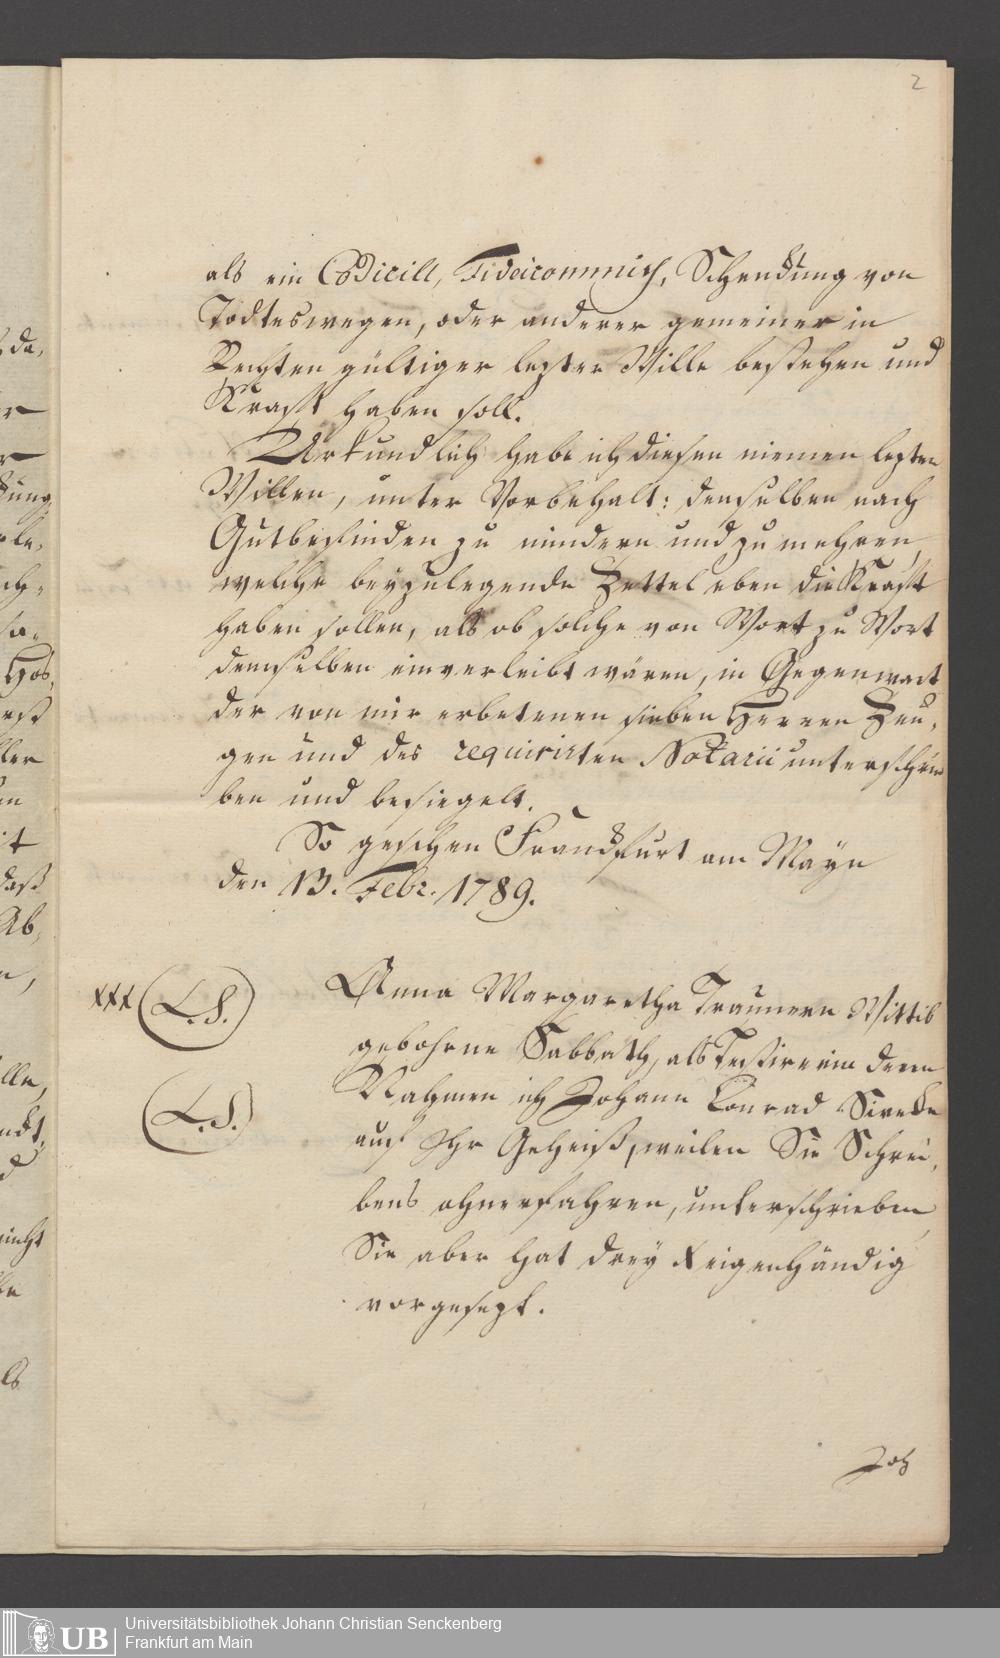 2
als ein Codicill, Fideicommiß, Schenckung von
Todteswegen, oder anderer gemeiner in
Rechten gültiger lezter Wille bestehen und
Kraft haben soll.
Urkundlich habe ich diesen meinen lezten
Willen, unter Vorbehalt: denselben nach
Gutbefinden zu mindern und zu mehren,
welche beyzulegende Zettel eben die Kraft
haben sollen, als ob solche von Wort zu Wort
demselben einverleibt wären, in Gegenwart
der von mir erbetenen sieben Herren Zeu-
gen und des requirirten Notarii unterschrie
ben und besiegelt.
So geschehen Franckfurt am Mayn
den 13. Febr. 1789.
xxx (L.S.) Anna Margaretha Traunern Wittib
gebohrne Sabbath, als Testirerin deren
(L.S.) Nahmen ich Johann Conrad Sivecke
auf Ihr Geheiß, weilen Sie Schrei-
bens ohnerfahren, unterschrieben,
Sie aber hat drey X eigenhändig
vorgesezt.
Joh
UB
Universitätsbibliothek Johann Christian Senckenberg
Frankfurt am Main